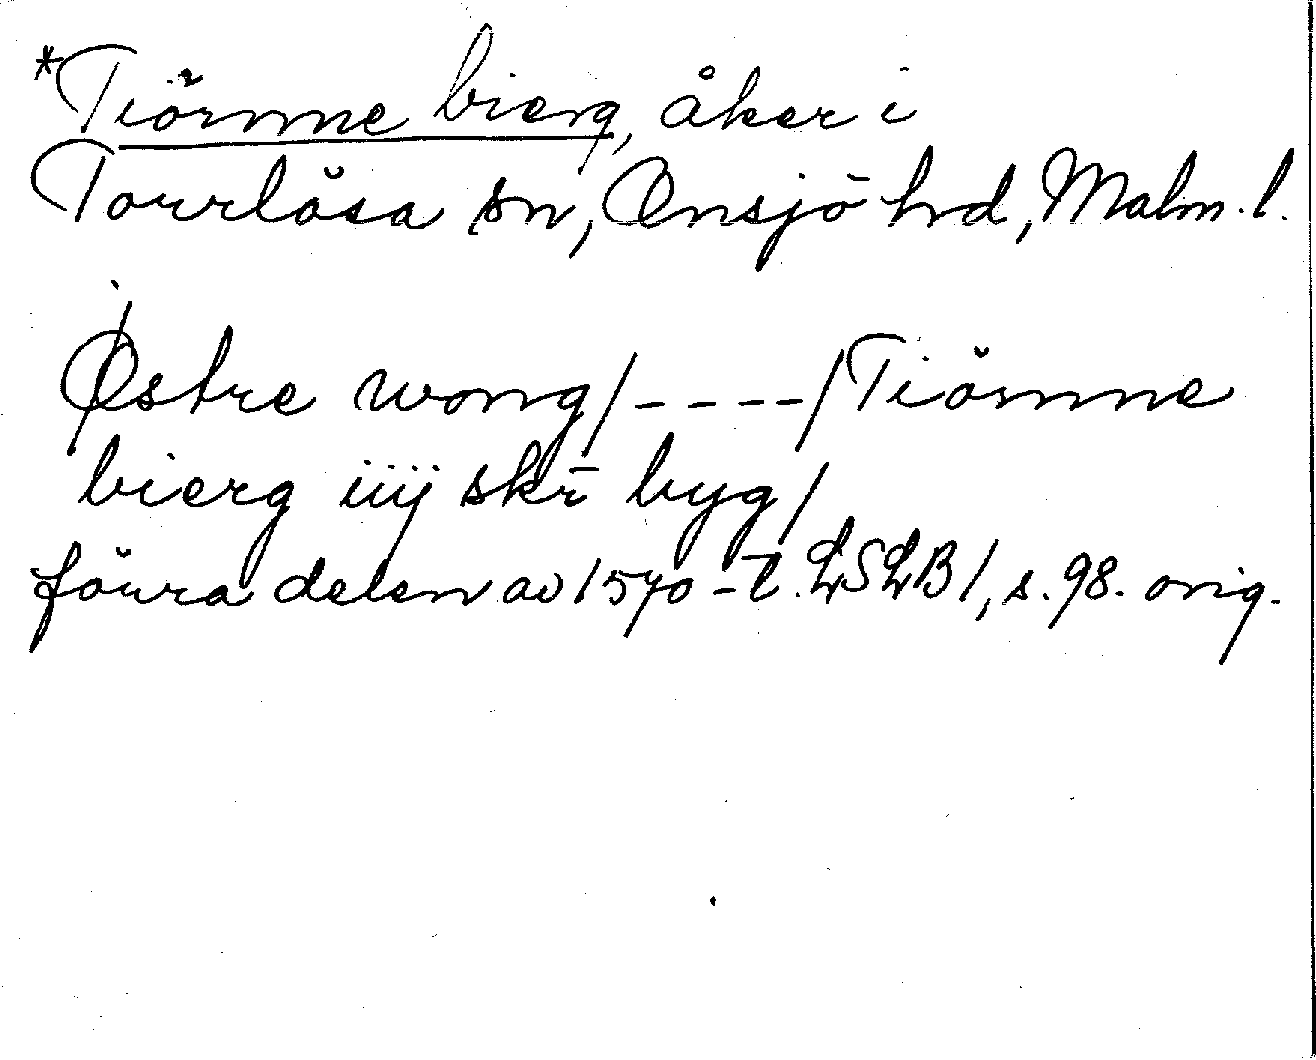 *Tiörnne bierg, åker i
Torrlösa sn, Onsjö hd, Malm. l.
Østre wong/----/Tiörnne
bierg iiij skr̄ byg/
förra delen av 1570-t. LSLB 1, s. 98. orig.